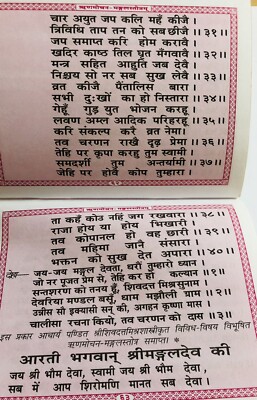 ऋणमोचन-मङ्गलस्तोत्रम्
चार अयुत जप कलि महँ कीजै ।
त्रिविधि ताप तन को सब छीजै ।।३१।।
जप समाप्त करि होम करावै ।
खदिर काष्ठ तिल घृत मँगवावै ।।३२।।
मन्त्र सहित आहुति जब देवै ।
निश्चय सो नर सब सुख लेवै ।।३३।।
व्रत कीजै पैंतालिस बारा ।
सभी दुःखों का हो निस्तारा ।।३४।।
गेहूँ गुड़ युत भोजन करहू ।
लवण अम्ल आदिक परिहरहू ।।३५।।
करि संकल्प करै व्रत नेमा ।
तव चरणन राखै दृढ़ प्रेमा ।।३६।।
तेहि पर कृपा करहु तुम स्वामी ।
समदर्शी तुम अन्तर्यामी ।।३७।।
जेहि पर होवै कोप तुम्हारा ।
ता कहँ कोउ नहिं जग रखवारा ।।३८।।
राजा होय या होय भिखारी ।
तव कोपानल हो वह छारी ।।३९।।
तव महिमा जानै संसारा ।
भक्तन को सुख देत अपारा ।।४०।।
दोहा— जय-जय मङ्गल देवता, धरौं तुम्हारो ध्यान ।
जो नर पूजत प्रेम से, तेहि कर हो कल्यान ।।१।।
सन्तशरण को तनय हूँ, शिवदत्त मिश्र सुनाम ।
देवरिया मण्डल बसूँ, धाम मझौली ग्राम ।।२।।
उन्नीस सौ इक्यासी सन् की, अगहन कृष्णा मास ।
चालीसा रचना कियो, तव चरणन को दास ।।३।।
इस प्रकार आचार्य पण्डित श्रीशिवदत्तमिश्रशास्त्रीकृत विविध-विषय विभूषित
ऋणमोचन-मङ्गलस्तोत्र समाप्त।
आरती भगवान् श्रीमङ्गलदेव की
जय श्री भौम देवा, स्वामी जय श्री भौम देवा,
सब में आप शिरोमणि मानत सब देवा ।